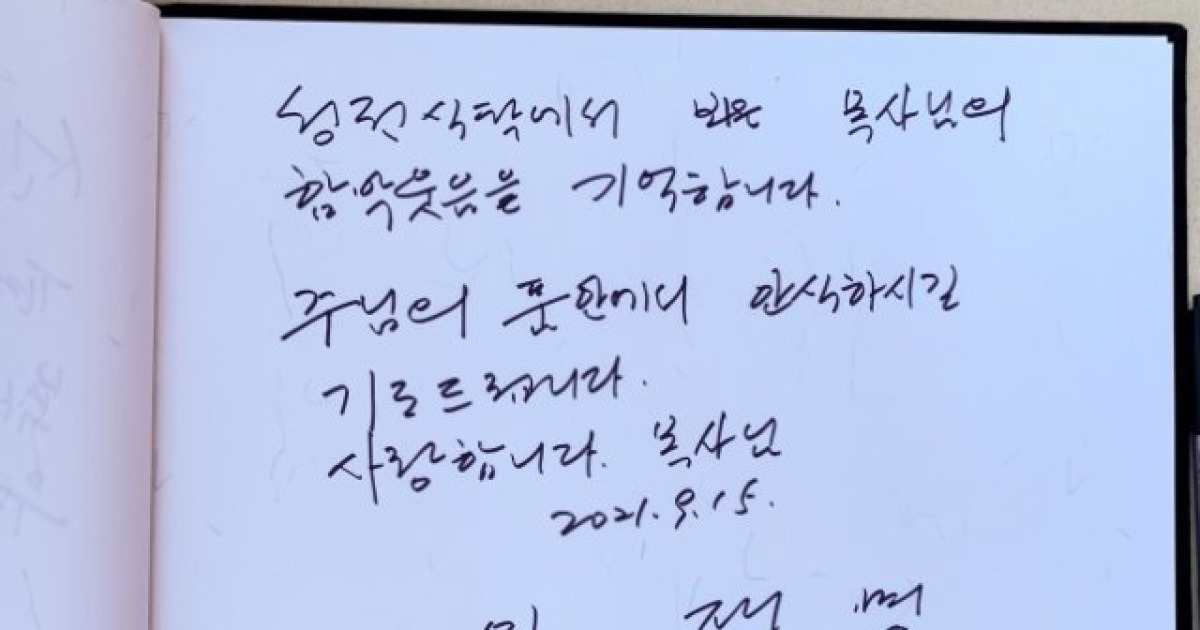 성전식탁에서 뵈온 목사님의
함악웃음을 기억합니다.
주님의 품안에서 안식하시길
기도드립니다.
사랑합니다. 목사님
2021. 9. 15.